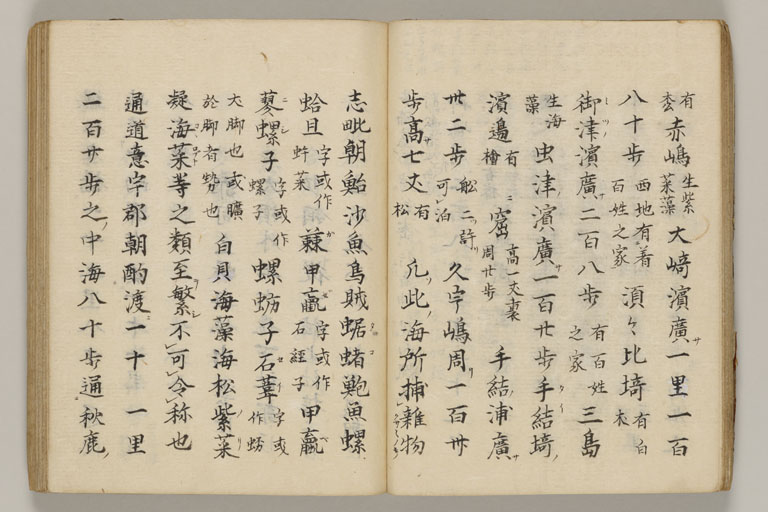 有枩赤嶋生紫菜藻大﨑濱廣一里一百
八十歩西地有着百姓之家須々比埼有白
御津濱廣二百八歩有百姓之家三島
生海藻虫津濱廣一百廿歩手結埼
濱邊有檜窟高一丈裏周廿歩手結浦廣
卅二歩舩二許可泊久宇嶋周一百卅
歩髙七丈有松凢此海所捕雜物
志毗朝鮐沙魚烏賊蜛蝫鮑魚螺
蛤且字或作蚌菜蕀甲蠃字或作石經子甲蠃
蓼螺子字或作螺子螺蛎子石葦字或作蛎
犬脚也或曠於脚者勢也白貝海藻海松紫菜
凝海菜等之類至繁不可令称也
通道意宇郡朝酌渡一十一里
二百廿歩之中海八十歩通秋鹿